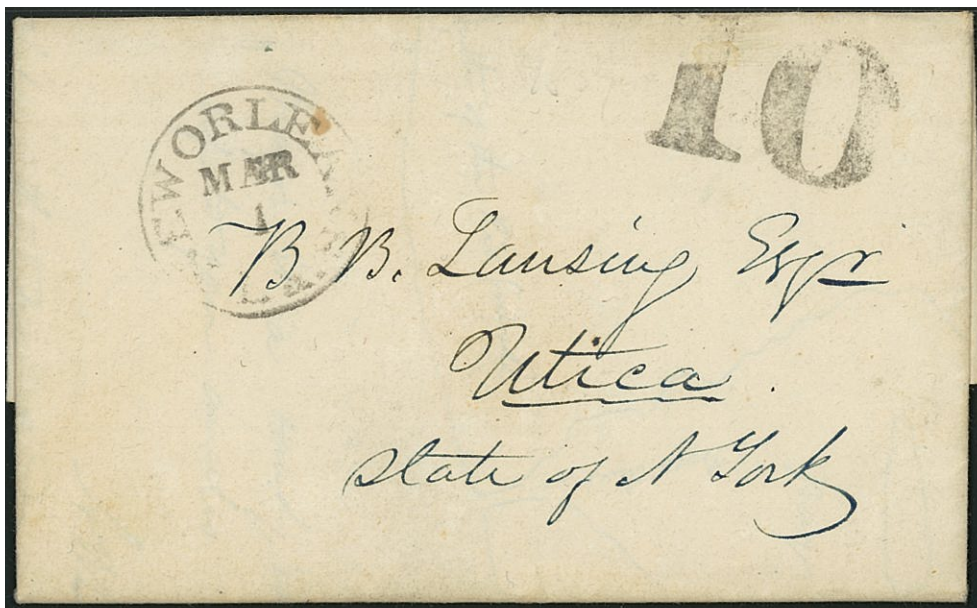 10
EW ORLEA
MAR
1
La.
B. B. Lansing Esqr
Utica.
State of N York